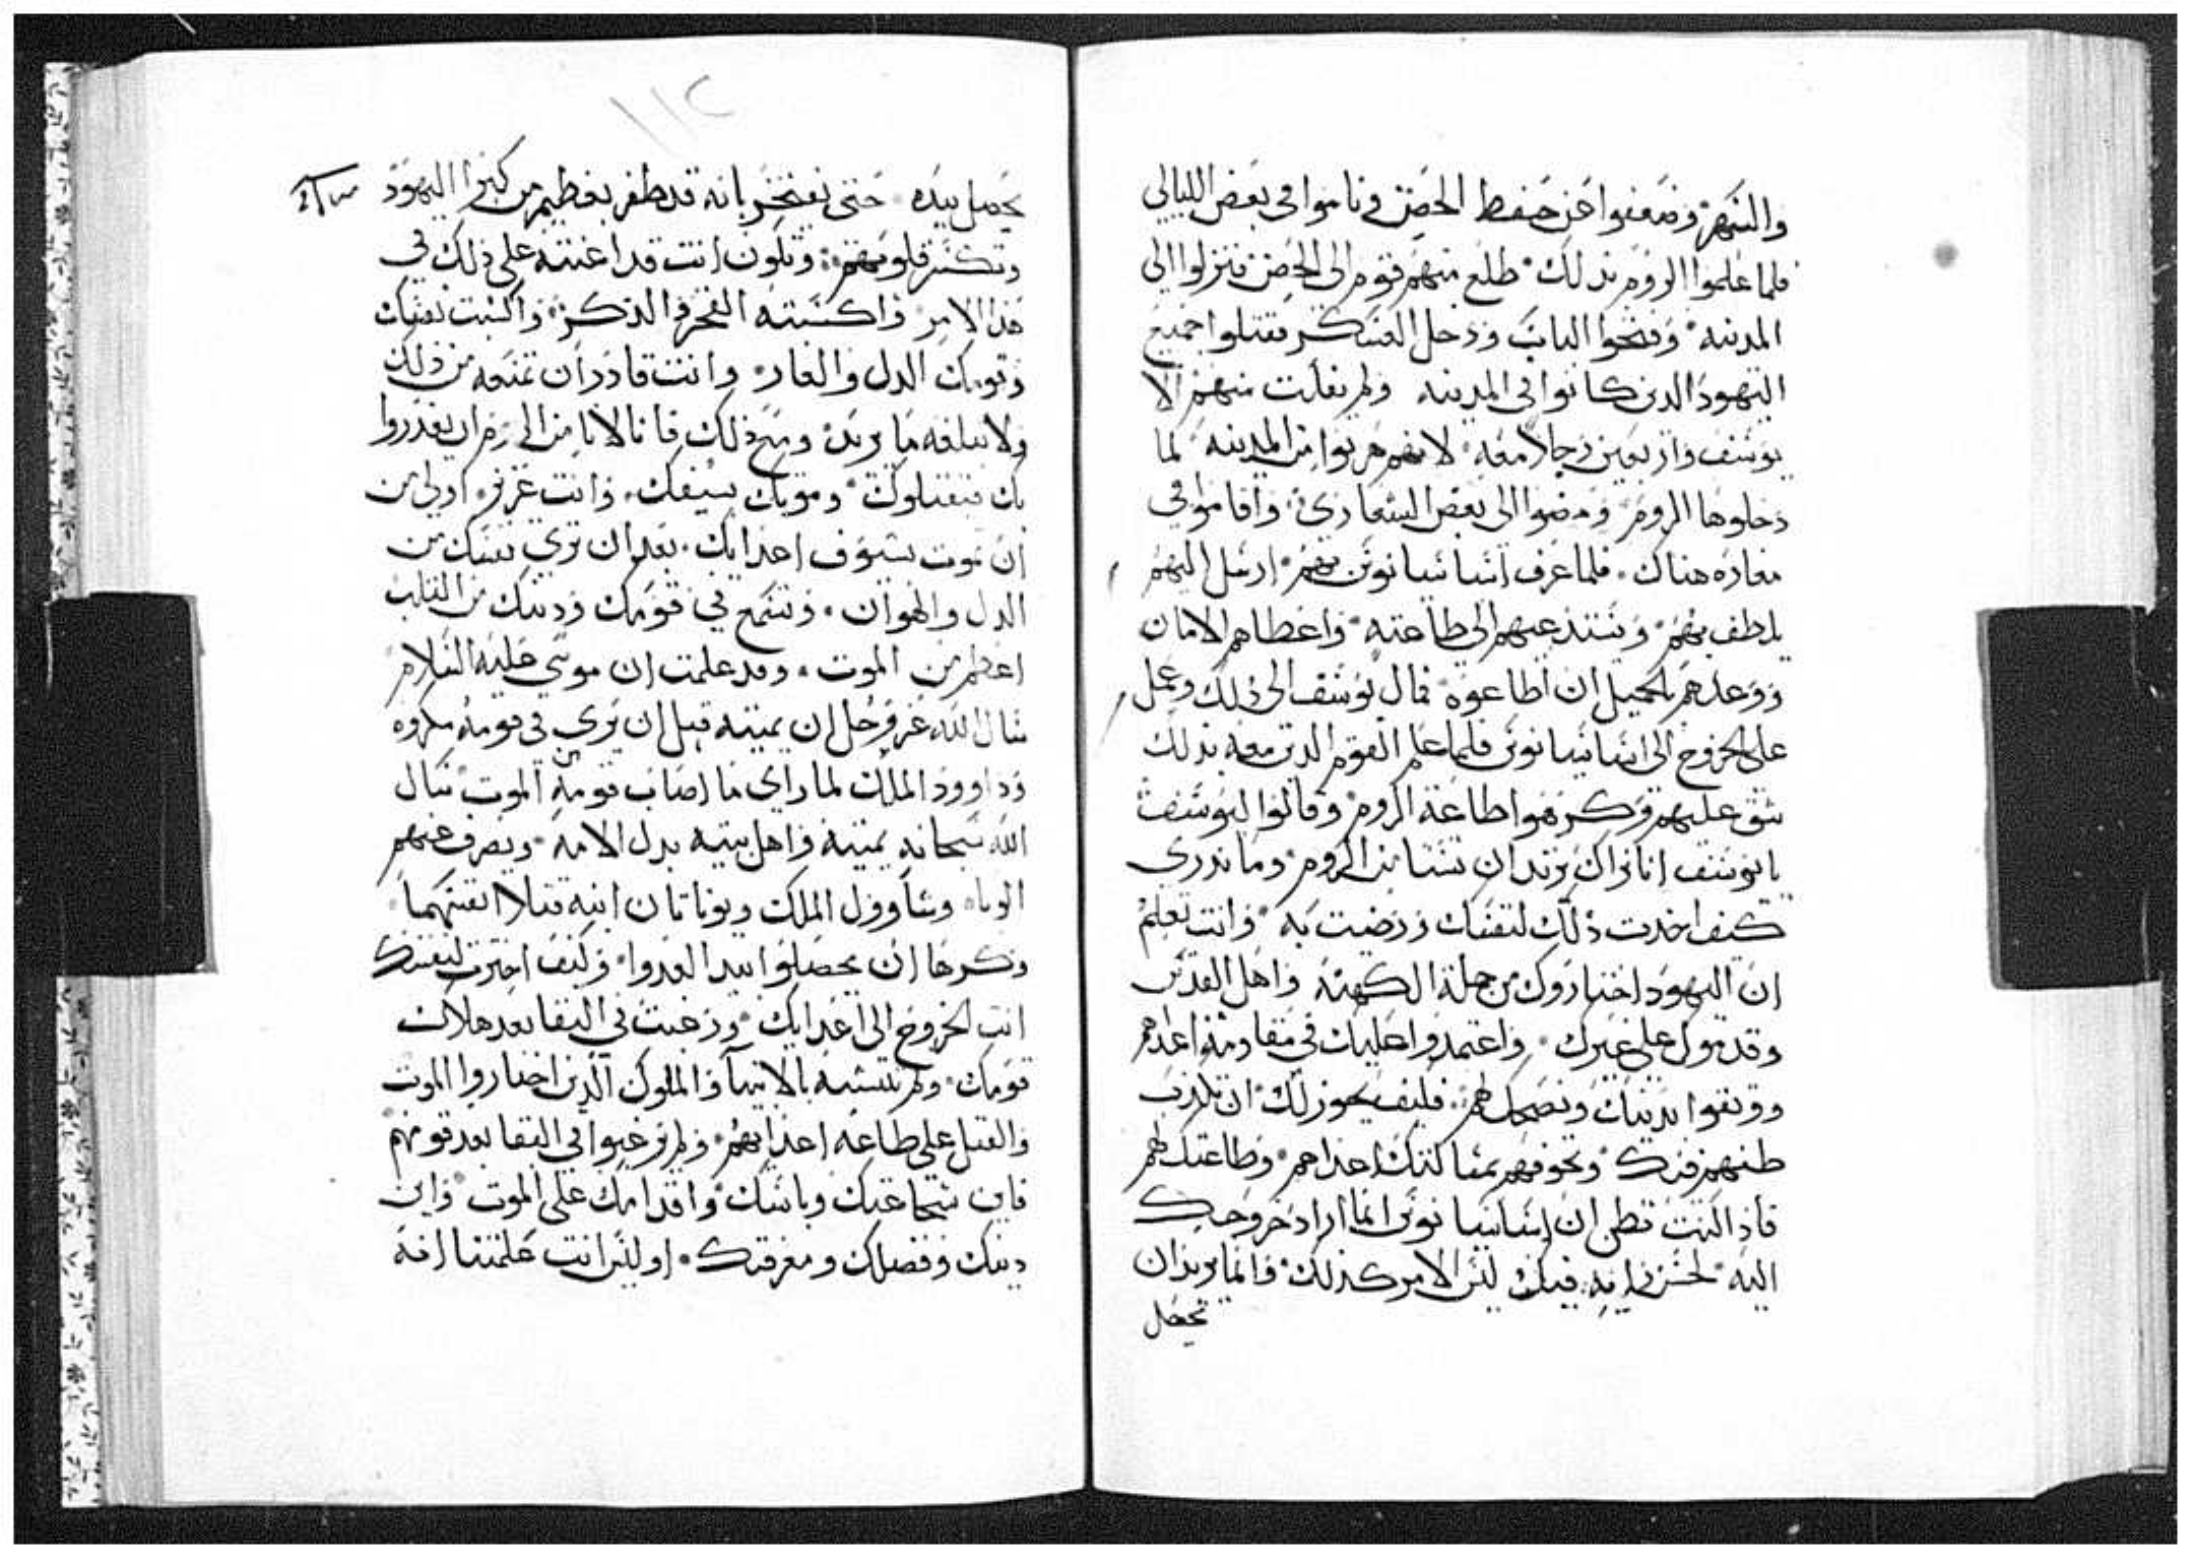 والسهر وضعفوا عن حفظ الحصن وناموا في بعض الليالي
فلما علموا الروم بذلك طلع منهم قوم الى الحصن فنزلوا الى
المدينه وفتحوا الباب ودخل العسكر فقتلوا جميع
اليهود الدين كانوا في المدينه ولم يفلت منهم الا
يوسف واربعين رجلا معه لانهم هربوا من المدينه لما
دخلوها الروم ومضوا الى بعض الشعاري واقاموا في
مغاره هناك فلما عرف اسباسيانوس بهم ارسل اليهم
يلطف بهم ويستدعيهم الى طاعته واعطاهم الامان
ووعدهم بالجميل ان اطاعوه فمال يوسف الى ذلك وعمل
على الخروج الى اسباسيانوس فلما علم القوم الدين معه بذلك
شق عليهم وكرهوا طاعة الروم وقالوا ليوسف
يا يوسف انا نراك تريد ان تستامن الروم وما ندري
كيف اخدت ذلك لنفسك ورضيت به وانت تعلم
ان اليهود اختاروك من جملة الكهنه واهل القدس
وقدموك على غيرك واعتمدوا عليك في مقاومة اعداهم
ووثقوا بدينك ونصحك لهم فكيف يجوز لك ان تكذب
ظنهم فيك وتخوفهم بمسالمتك اعداهم وطاعتك لهم
فاذا كنت تظن ان اسباسيانوس انما اراد خروجك
اليه لحسن رايه فيك ليس الامر كذلك وانما يريد ان
تحصل
١١٢
تحصل بيده حتى يفتخر بانه قد ظفر بعظيم من كبرا اليهود
وتكسر قلوبهم وتكون انت قد اعنته على ذلك في
هذا الامر واكسبته الفخر والذكر واكسبت نفسك
وقومك الدل والعار وانت قادر ان تمنعه من ذلك
ولا تبلغه ما يريد ومع ذلك فانا لا نامن الروم ان يغدروا
بك فيقتلوك وموتك بسيفك وانت عزيز اولى من
ان تموت بسيوف اعدايك بعد ان ترى نفسك من
الدل والهوان وتسمع في قومك ودينك من التلب
اعظم من الموت وقد علمت ان موسى عليه السلام
سال الله عز وجل ان يميته قبل ان يرى في قومه مكروه
وداوود الملك لما راى ما اصاب قومه من الموت سال
الله سبحانه يميته واهل بيته بدل الامه ويصرف عنهم
الوباء وشاوول الملك ويوناتان ابنه قتلا انفسهما
وكرها ان يحصلوا بيد العدوا وكيف اخترت لنفسك
انت الخروج الى اعدايك ورغبت في البقا بعد هلاك
قومك ولم تتشبه بالانبيا والملوك الذين اختاروا الموت
والقتل على طاعه اعدايهم ولم يرغبوا في البقا بعد قومهم
فاين شجاعتك وباسك واقدامك على الموت واين
دينك وفضلك ومعرفتك اوليس انت علمتنا انه